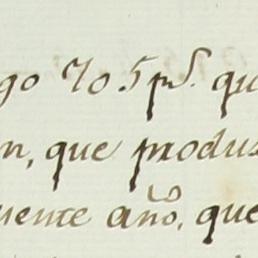 go 705 p.s qu
n, que produz
uente año, que